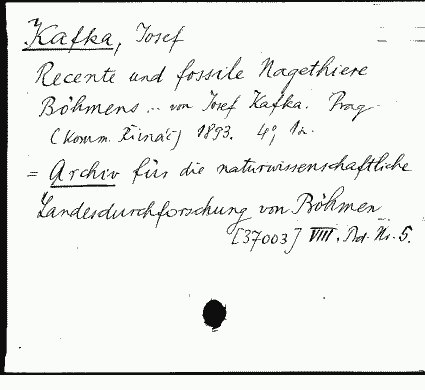 Kafka, Josef
Recente und fossile Nagethiere
Böhmens .. von Josef Kafka. Prag
(Komm. Řivnáč) 1893. 4°,
= Archiv für die naturwissenschaftliche
Landesdurchforschung von Böhmen
[37003] VIII. Bd. Nr. 5.